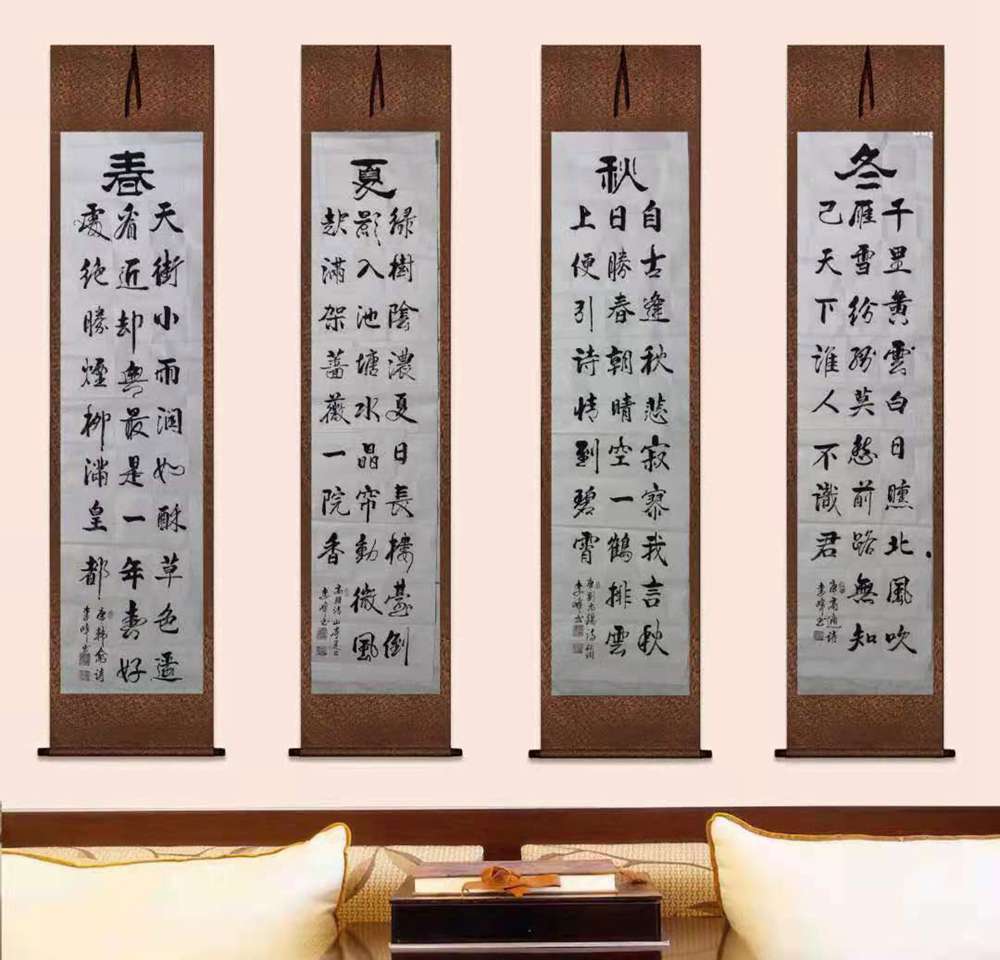 春
天街小雨润如酥草色遥
看近却無最是一年春好
處绝勝煙柳滿皇都
唐韩愈诗
李峰书
夏
緑樹陰濃夏日長樓臺倒
影入池塘水晶帘動微風
起滿架薔薇一院香
高駢诗山亭夏日
李峰书
秋
自古逢秋悲寂寥我言秋
日勝春朝晴空一鶴排雲
上便引诗情到碧霄
唐劉禹錫诗秋词
李峰书
冬
千里黄雲白日曛北風吹
雁雪纷纷莫愁前路無知
己天下谁人不識君
唐高適诗
李峰书